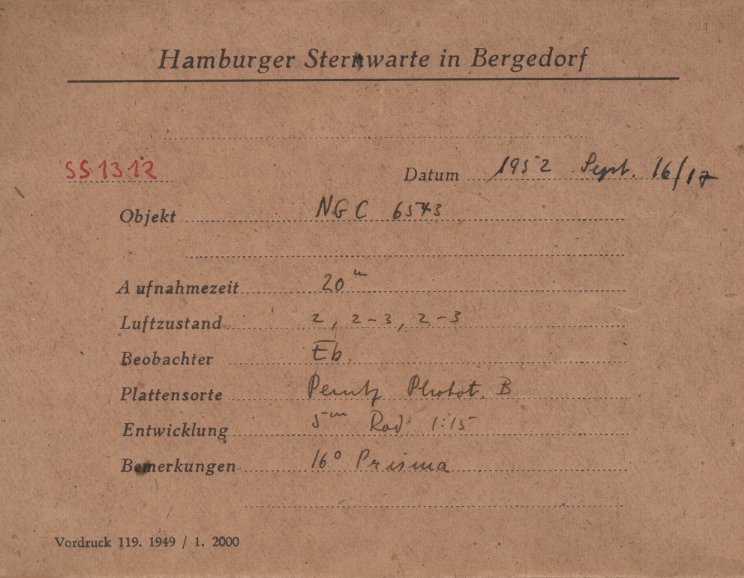 Hamburger Sternwarte in Bergedorf
SS1312 Datum 1952 Sept. 16/17
Objekt NGC 6543
Aufnahmezeit 20ᵐ
Luftzustand 2, 2-3, 2-3
Beobachter Eb.
Plattensorte Perutz Phototh. B
Entwicklung 5ᵐ Rod 1:15
Bemerkungen 16° Prisma
Vordruck 119. 1949 / 1. 2000